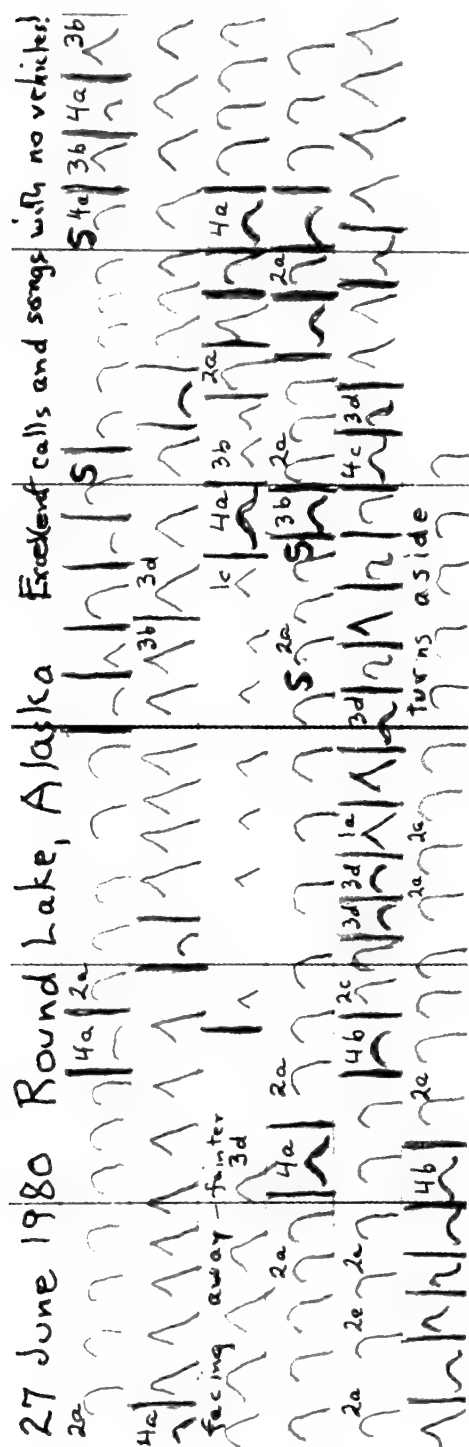 27 June 1980 Round Lake, Alaska Excellent calls and songs with no vehicles!
2a 4a 2a S S 4a 3b 4a 3b
4a 3b 3d
facing away – fainter 3d 1c 4a 3b 2a 4a
2a 4a 2a S 2a S 3b 2a 2a
2a 2e 4b 2c 3d 3d 1a 3d 4c 3d
4b 2a 2a turns aside